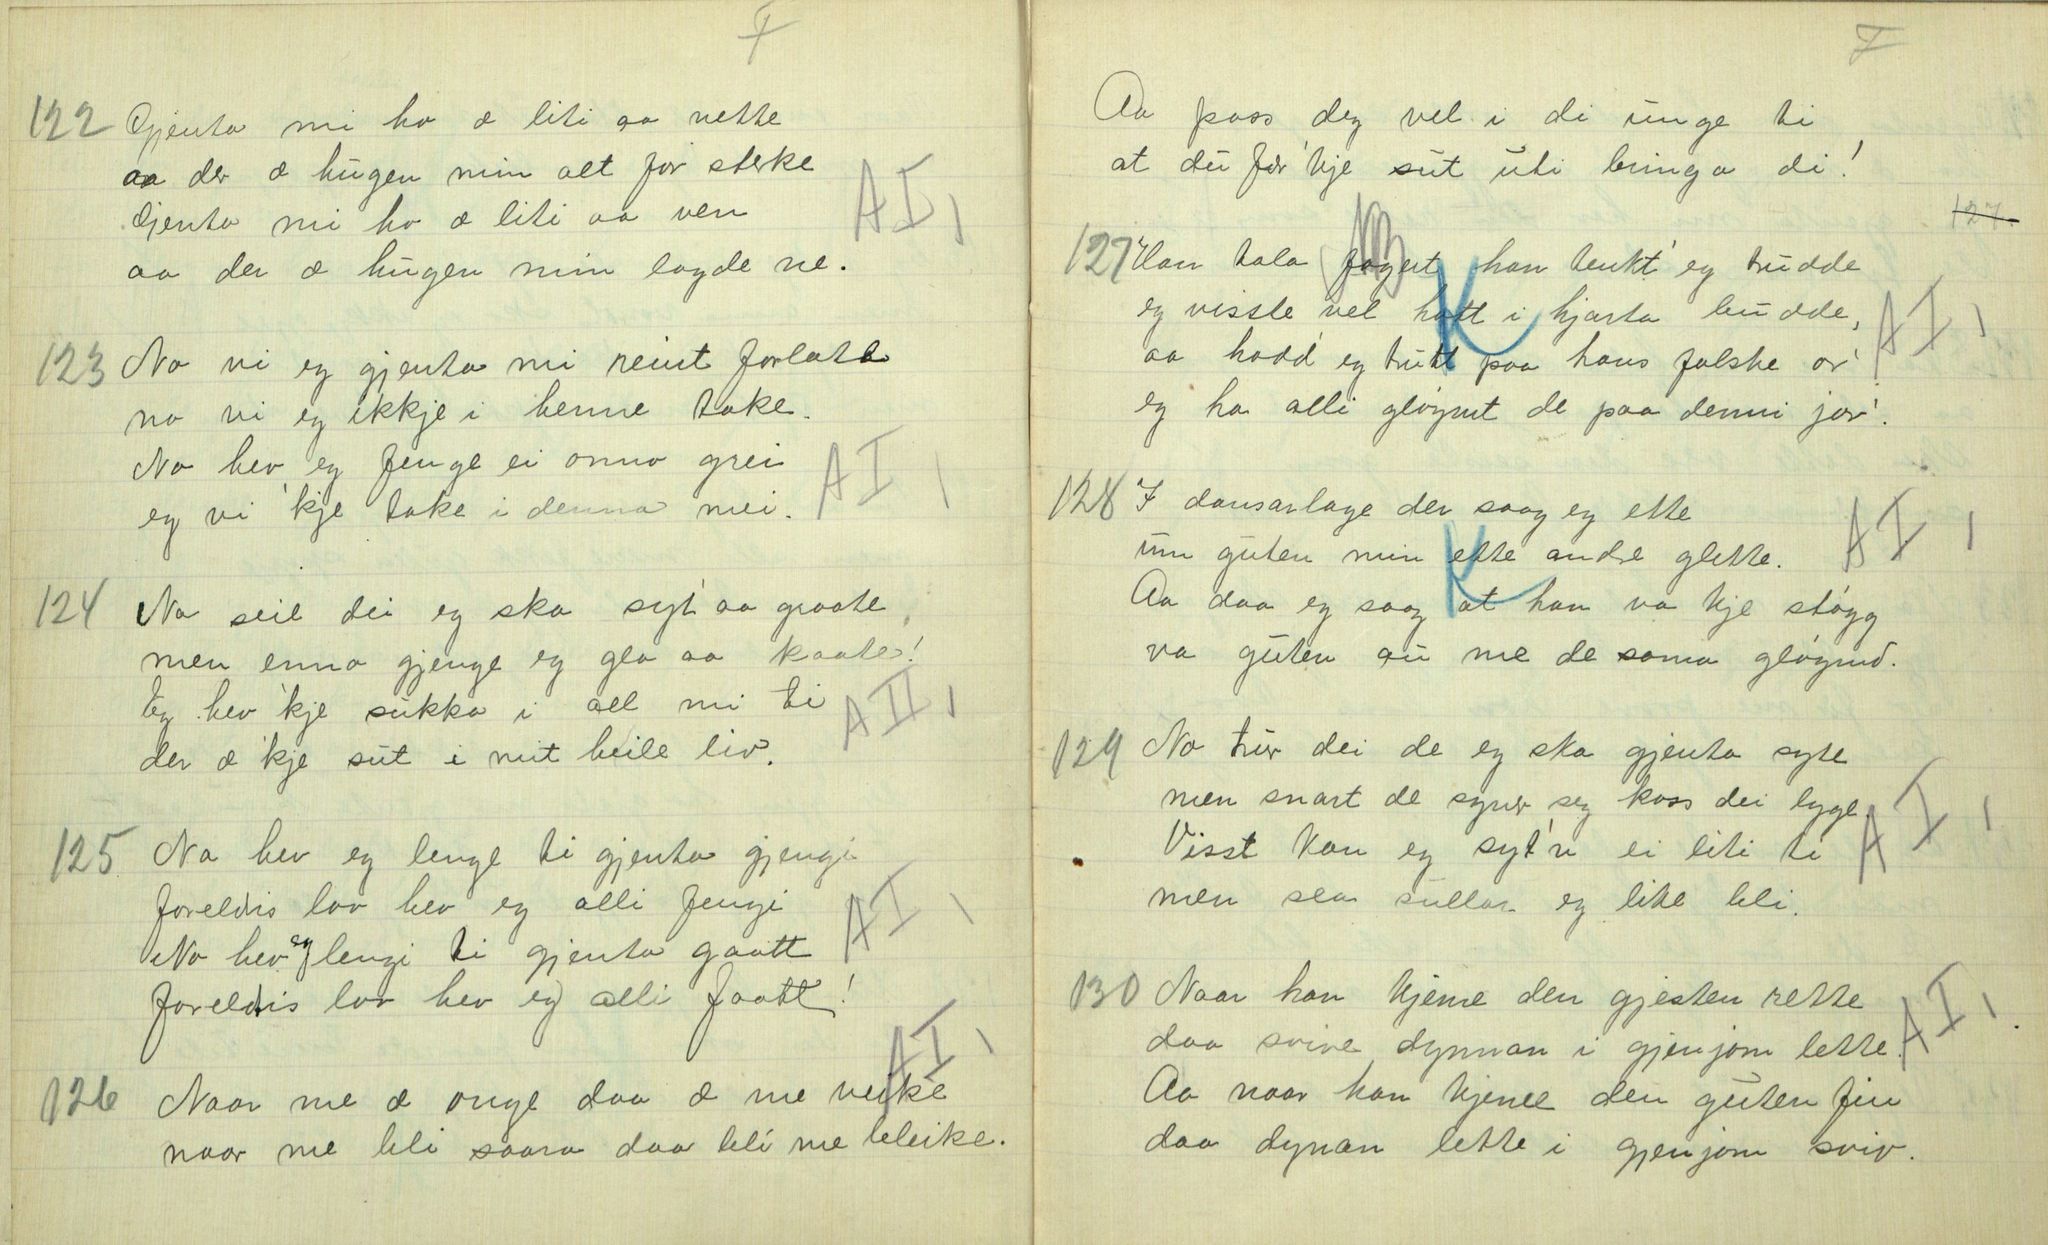 F
122 Gjenta mi ho æ liti aa nette
aa der æ hugen min alt for sterke
Gjenta mi ho æ liti aa ven
aa der æ hugen min lagde ne.
AI,
123 No vi eg gjenta mi reint forlata
no vi eg ikkje i henne take.
No hev eg fenge ei onno grei
eg vi 'kje take i denna mei.
AI,
124 No seie dei eg ska syt' aa graate,
men enno gjenge eg gla aa kaate!
Eg hev 'kje sukka i all mi ti
der æ 'kje sut i mit heile liv.
AII,
125 No hev eg lenge ti gjenta gjengi
foreldris lov hev eg alli fengi
No hev eg lengi ti gjenta gaatt
foreldris lov hev eg alli faatt!
AI,
126 Naar me æ onge daa æ me veike
naar me bli saara daa bli me bleike.
AI,
F
Aa pass deg vel i di unge ti
at du fær 'kje sut uti bringa di!
127.
127 Han tala fagert han tenkt' eg trudde
eg visste vel hott i hjarta budde,
aa hadd' eg trutt paa hans falske or'
eg ha alli gløymt de paa denni jor'.
NB
K
AI,
128 I dansarlage der saag eg ette
um guten min ette andre glette.
Aa daa eg saag at han va kje støgg
va guten au me de sama gløgmd.
K
AI,
129 No trur dei de eg ska gjenta syte
men snart de syner seg koss dei lyge.
Visst kan eg syt'n ei liti ti
men sea sullar eg like bli.
AI,
130 Naar han kjeme den gjesten rette
daa svive dynnan i gjenjom lette.
Aa naar han kjeme den guten fin
daa dynan lette i gjenjom sviv.
AI,